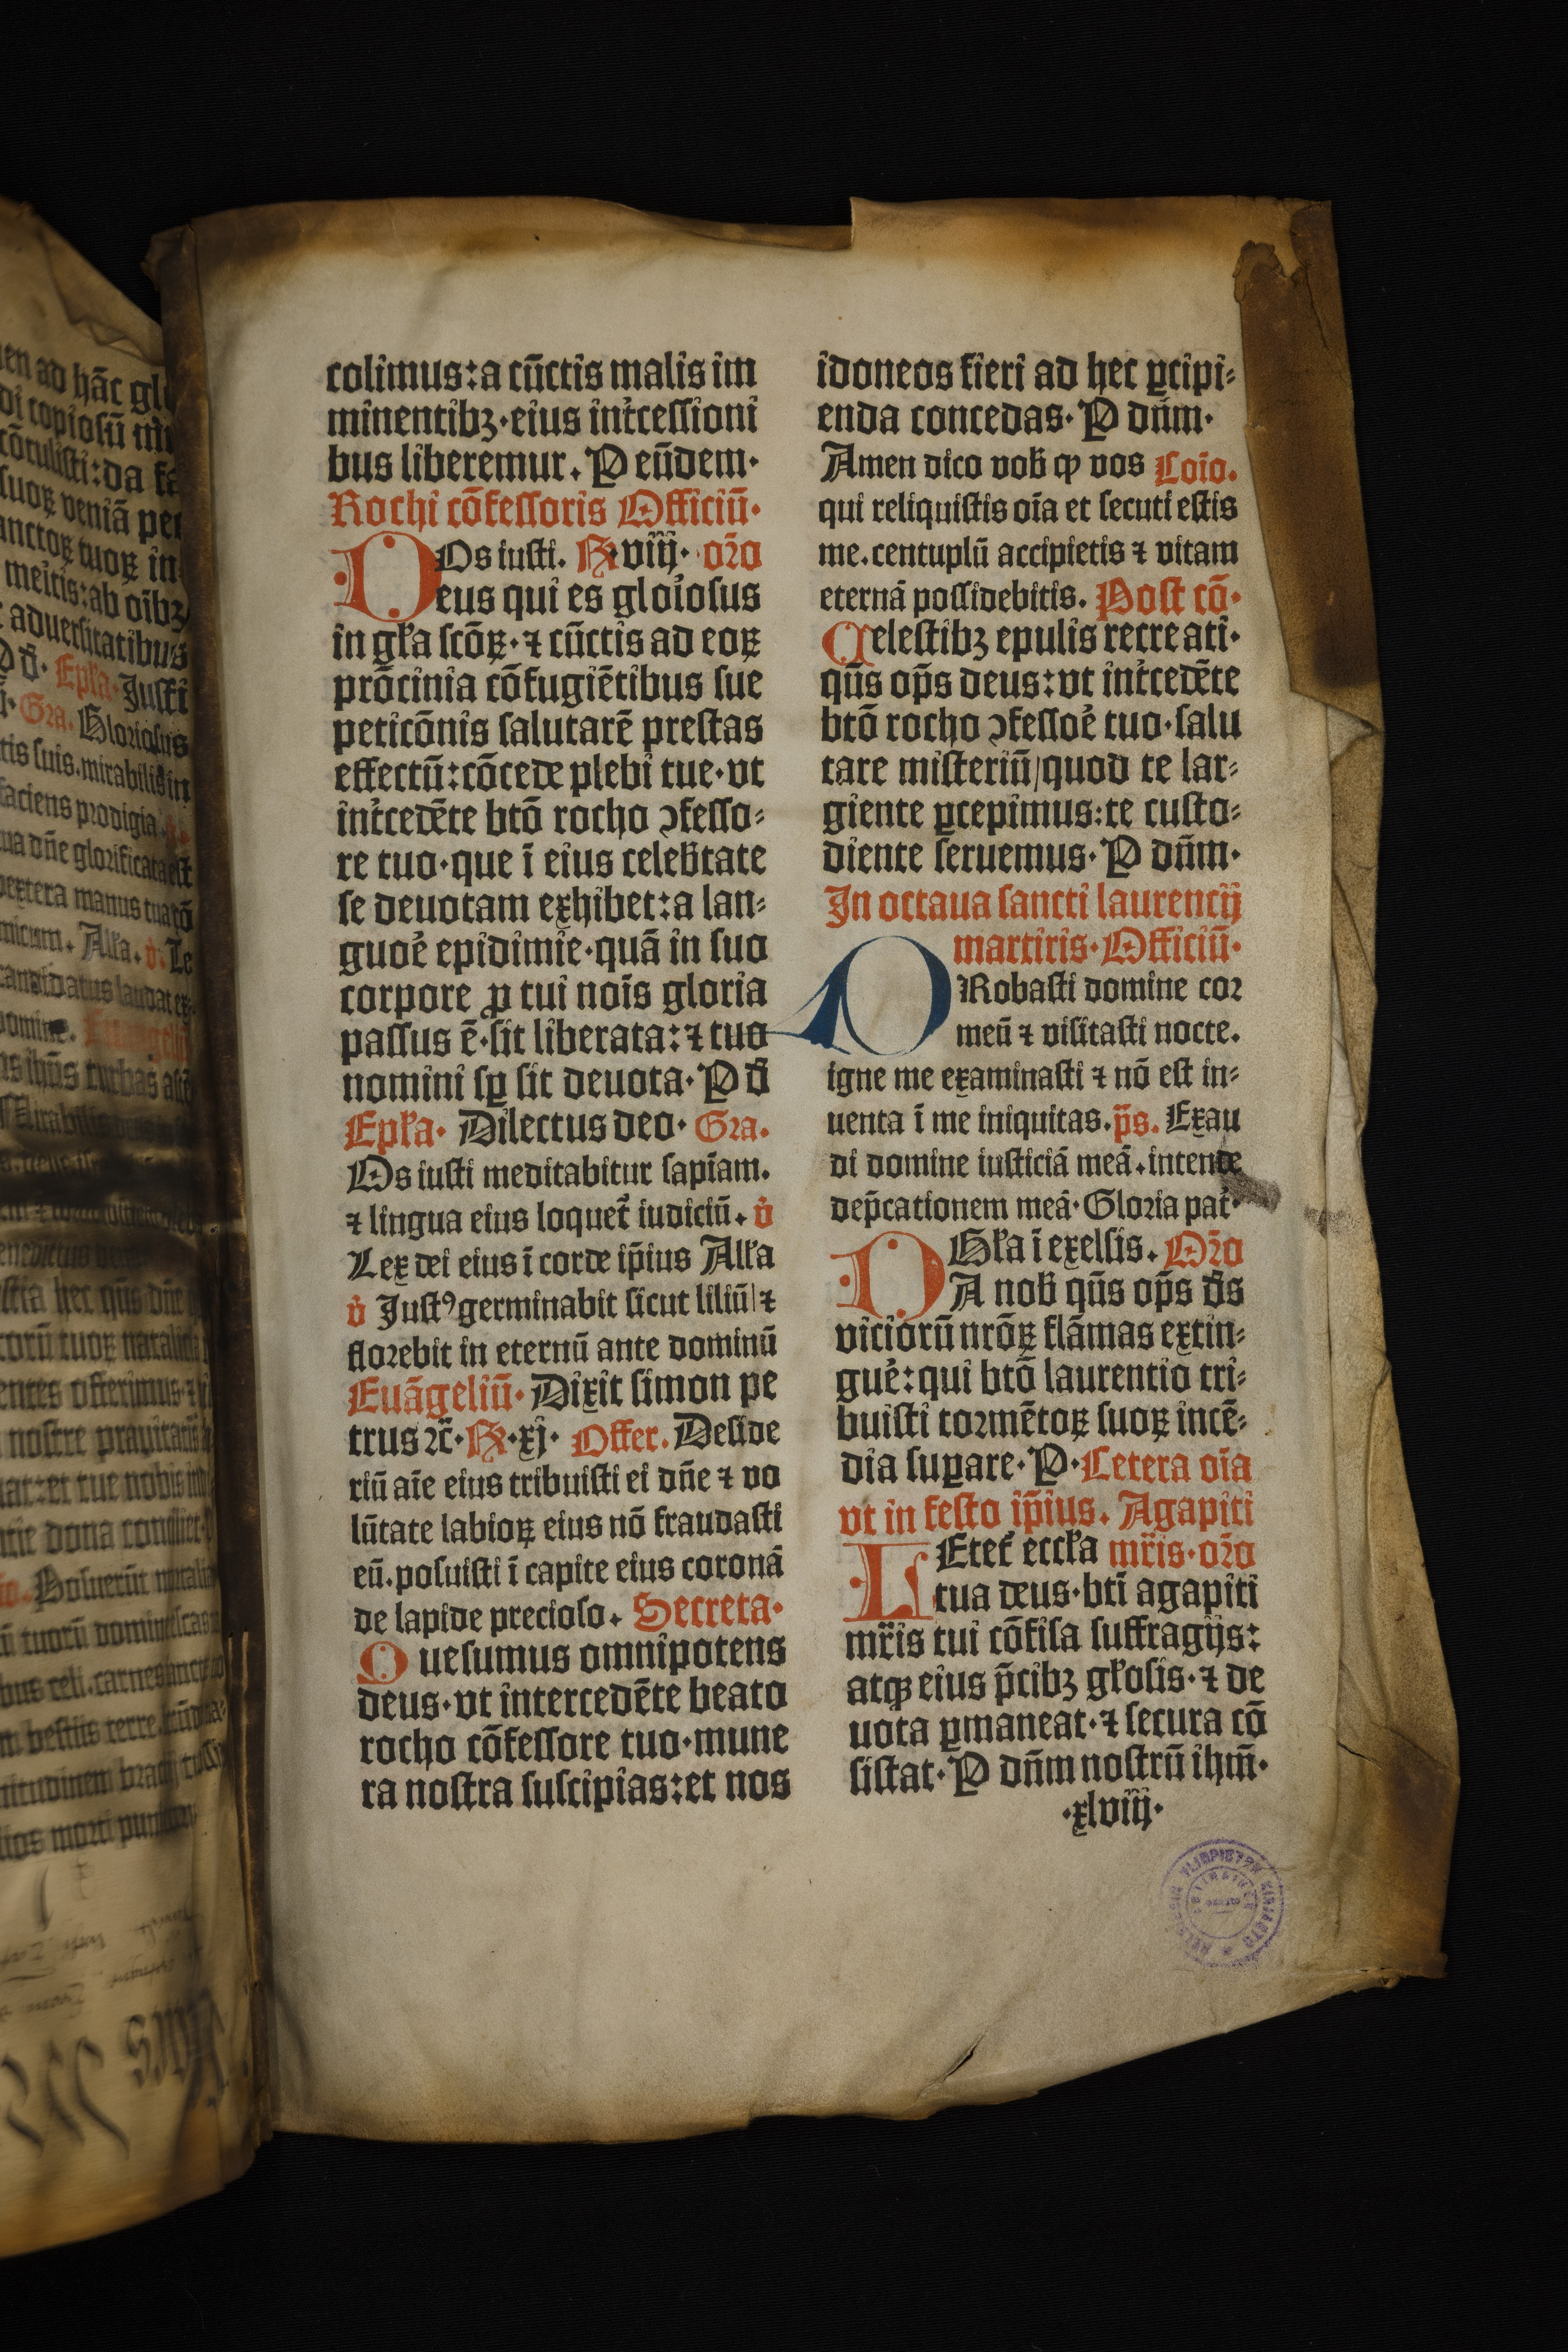 colimus:a cūctis malis im
minentibꝫ·eius int̾cessioni
bus liberemur. P eūdem·
Rochi cōfessoris Officiū·
Os iusti. R viij· or̄o
Deus qui es glo̾iosus
in gl̄a scōꝝ·⁊ cūctis ad eoꝝ
prōcinia cōfugiētibus sue
peticōnis salutarē prestas
effectū:cōcede plebi tue·vt
int̾cedēte btō rocho ɔfesso⸗
re tuo·que ī eius celeb̄tate
se deuotam exhibet:a lan⸗
guoe̾ epidimie·quā in suo
corpore ꝓ tui noīs gloria
passus ē·sit liberata:⁊ tuo
nomini sꝑ sit deuota·P d̄
Epl̄a· Dilectus deo· Gra.
Os iusti meditabitur sapīam.
⁊ lingua eius loquet᷑ iudiciū. v̾
Lex dei eius ī corde ip̄ius All̄a
v̾ Justꝰ germinabit sicut liliū|⁊
florebit in eternū ante dominū
Euāgeliū· Dixit simon pe
trus ⁊c̄·R·xj· Offer. Deside
riū aīe eius tribuisti ei dn̄e ⁊ vo
lūtate labioꝝ eius nō fraudasti
eū.posuisti ī capite eius coronā
de lapide precioso. Secreta·
Quesumus omnipotens
deus·vt intercedēte beato
rocho cōfessore tuo·mune
ra nostra suscipias:et nos
idoneos fieri ad hec ꝑcipi⸗
enda concedas· P dn̄m·
Amen dico vob̄ ꝙ vos Cōio.
qui reliquistis oīa et secuti estis
me.centuplū accipietis ⁊ vitam
eternā possidebitis. Post cō·
Celestibꝫ epulis recreati·
qūs op̄s deus:vt int̾cedēte
btō rocho ɔfessoe̾ tuo·salu
tare misteriū/quod te lar⸗
giente ꝑcepimus:te custo⸗
diente seruemus· P dn̄m·
In octaua sancti laurencij
martiris·Officiū·
PRobasti domine cor
meū ⁊ visitasti nocte.
igne me examinasti ⁊ nō est in⸗
uenta ī me iniquitas.p̄s. Exau
di domine iusticiā meā.intende
dep̄cationem meā·Gloria pat̾·
Gl̄a ī exelsis. Or̄o
DA nob̄ qūs op̄s d̄s
viciorū nrōꝝ flāmas extin⸗
gue̾:qui btō laurentio tri⸗
buisti tormētoꝝ suoꝝ incē⸗
dia suꝑare·P·Cetera oīa
vt in festo ip̄ius. Agapiti
LEtet᷑ eccl̄a mr̄is·or̄o
tua deus·btī agapiti
mr̄is tui cōfisa suffragijs:
atqꝫ eius p̄cibꝫ gl̄osis·⁊ de
uota ꝑmaneat·⁊ secura cō
sistat·P dn̄m nostrū ihm̄·
·xlviij·